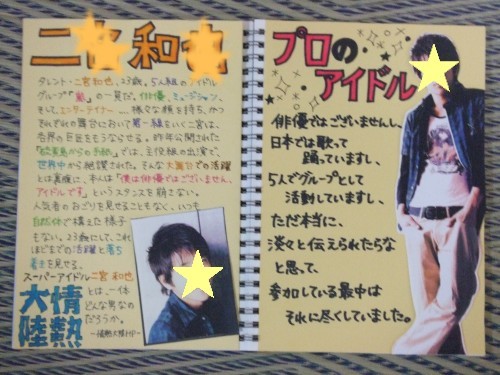 二宮和也
タレント・二宮和也、23歳。5人組のアイドル
グループ「嵐」の一員だ。俳優、ミュージシャン、
そしてエンターテイナー…。様々な顔を持ち、かつ
それぞれの舞台において第一線をいく二宮は、
各界の巨匠をもうならせる。昨年公開された
「硫黄島からの手紙」では、主役級の出演で、
世界中から絶賛された。そんな大舞台での活躍
とは裏腹に、本人は「僕は俳優ではございません、
アイドルです。」というスタンスを崩さない。
人気者のおごりを見せることもなく、いつも
自然体で構えた様子
もない。23歳にして、これ
ほどまでの活躍と落ち
着きを見せる、
スーパーアイドル二宮 和也
とは、一体
どんな男なの
だろうか。
-情熱大陸HP-
情熱
大陸
プロの
アイドル
俳優ではございませんし、
日本では歌って
踊っていますし、
5人でグループとして
活動していますし、
ただ本当に、
淡々と伝えられたらな
と思って、
参加している最中は
それに尽くしていました。